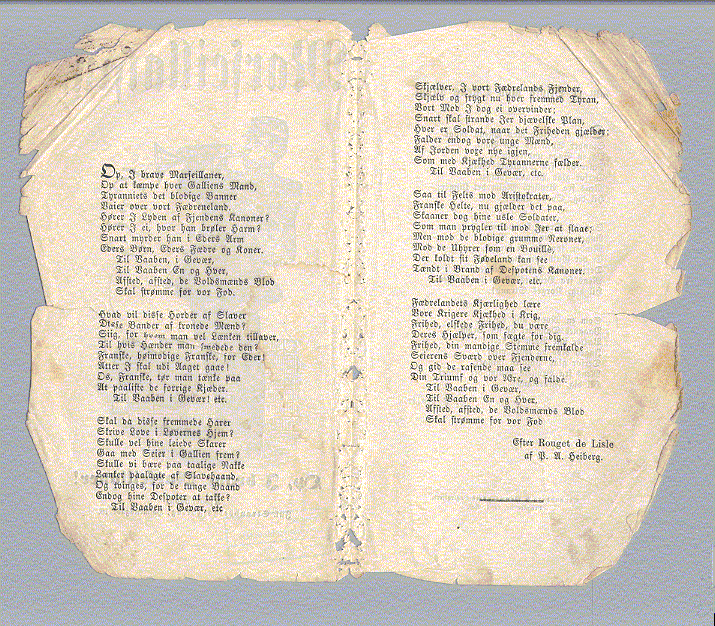 Op, I brave Marseillaner,
Op at kæmpe hver Galliens Mand,
Tyranniets det blodige Banner
Vaier over vort Fædreneland.
Hører I Lyden af Fjendens Kanoner?
Hører I ei, hvor han brøler Harm?
Snart myrder han i Eders Arm
Eders Børn, Eders Fædre og Koner.
Til Vaaben, i Gevær,
Til Vaaben En og Hver,
Afsted, afsted, de Voldsmænds Blod
Skal strømme for vor Fod.
Hvad vil disse Horder af Slaver
Disse Bander af kronede Mænd?
Siig, for hvem man vel Lænken tillaver,
Til hvis Hænder man smedede den?
Franske, høimodige Franske, for Eder!
Atter I skal udi Aaget gaae!
Os, Franske, tør man tænke paa
At paaliste de forrige Kjæder.
Til Vaaben i Gevær! etc.
Skal da disse fremmede Harer
Skrive Love i Løvernes Hjem?
Skulle vel hine leiede Skarer
Gaa med Seier i Gallien frem?
Skulle vi bære paa taalige Nakke
Lænker paalagte af Slavehaand,
Og tvinges, for de tunge Baand
Endog hine Despoter at takke?
Til Vaaben i Gevær, etc
Skjælver, I vort Fædrelands Fjender,
Skjælv og frygt nu hver fremmed Tyran,
Vort Mod I dog ei overvinder;
Snart skal strande Jer djævelske Plan,
Hver er Soldat, naar det Friheden gjælder;
Falder endog vore unge Mænd,
Af Jorden vore nye igjen,
Som med Kjækhed Tyrannerne fælder.
Til Vaaben i Gevær, etc.
Saa til Felts mod Aristokrater,
Franske Helte, nu gjælder det paa,
Skaaner dog hine usle Soldater,
Som man prygler til mod Jer at slaae;
Men mod de blodige grumme Neroner,
Mod de Uhyrer som en Bouillé,
Der koldt sit Fødeland kan see
Tændt i Brand af Despotens Kanoner.
Til Vaaben i Gevær, etc.
Fædrelandets Kjærlighed lære
Vore Krigere Kjækhed i Krig,
Frihed, elskede Frihed, du være
Deres Hjælper, som fægte for dig.
Frihed, din mandige Stemme fremkalde
Seierens Sværd over Fjenderne,
Og gid de rasende maa see
Din Triumf og vor Ære, og falde.
Til Vaaben i Gevær,
Til Vaaben En og Hver,
Afsted, afsted, de Voldsmænds Blod
Skal strømme for vor Fod
Efter Rouget de Lisle
af P. A. Heiberg.